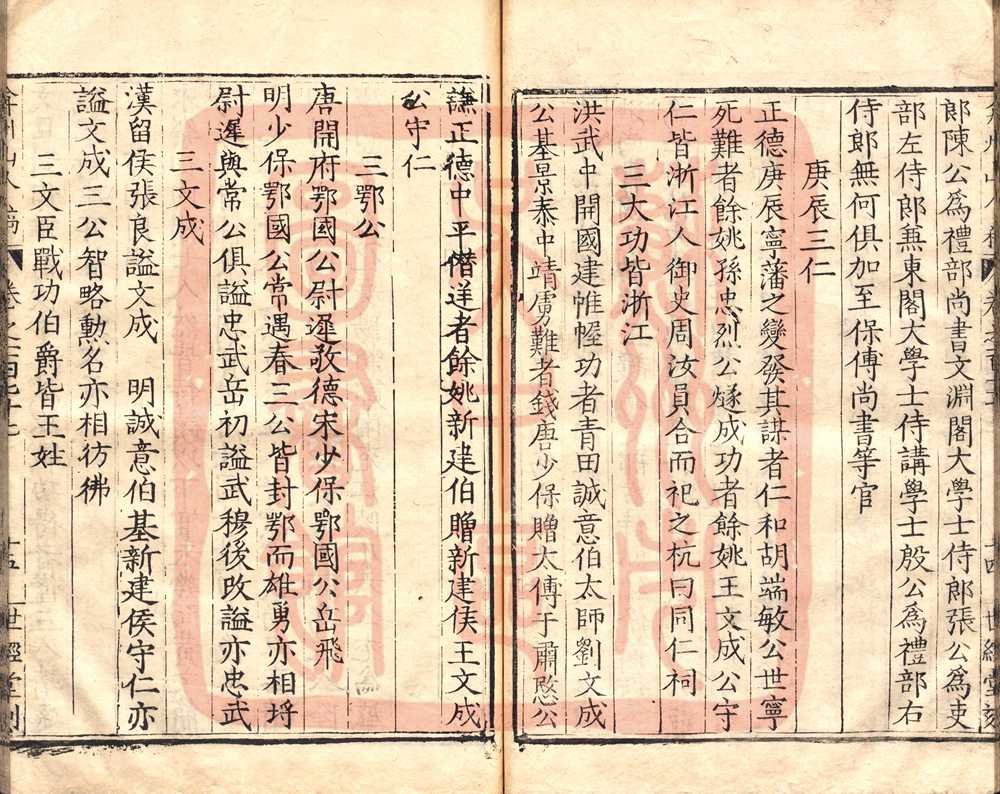 郎陳公爲禮部尚書文淵閣大學士侍郎張公爲吏
部左侍郎兼東閣大學士侍講學士殷公爲禮部右
侍郎無何俱加至保傅尚書等官
庚辰三仁
正德庚辰寧藩之變發其謀者仁和胡端敏公世寧
死難者餘姚孫忠烈公燧成功者餘姚王文成公守
仁皆浙江人御史周汝員合而祀之杭曰同仁祠
三大功皆浙江
洪武中開國建帷幄功者青田誠意伯太師劉文成
公基景泰中靖虜難者錢唐少保贈太傅于肅愍公
謙正德中平僭逆者餘姚新建伯贈新建侯王文成
公守仁
三鄂公
唐開府鄂國公尉遲敬德宋少保鄂國公岳飛
明少保鄂國公常遇春三公皆封鄂而雄勇亦相埒
尉遲與常公俱謚忠武岳初謚武穆後改謚亦忠武
三文成
漢留侯張良謚文成 明誠意伯基新建侯守仁亦
謚文成三公智略勲名亦相彷彿
三文臣戰功伯爵皆王姓
弇州山人稿 卷之百 十五 世經堂刻